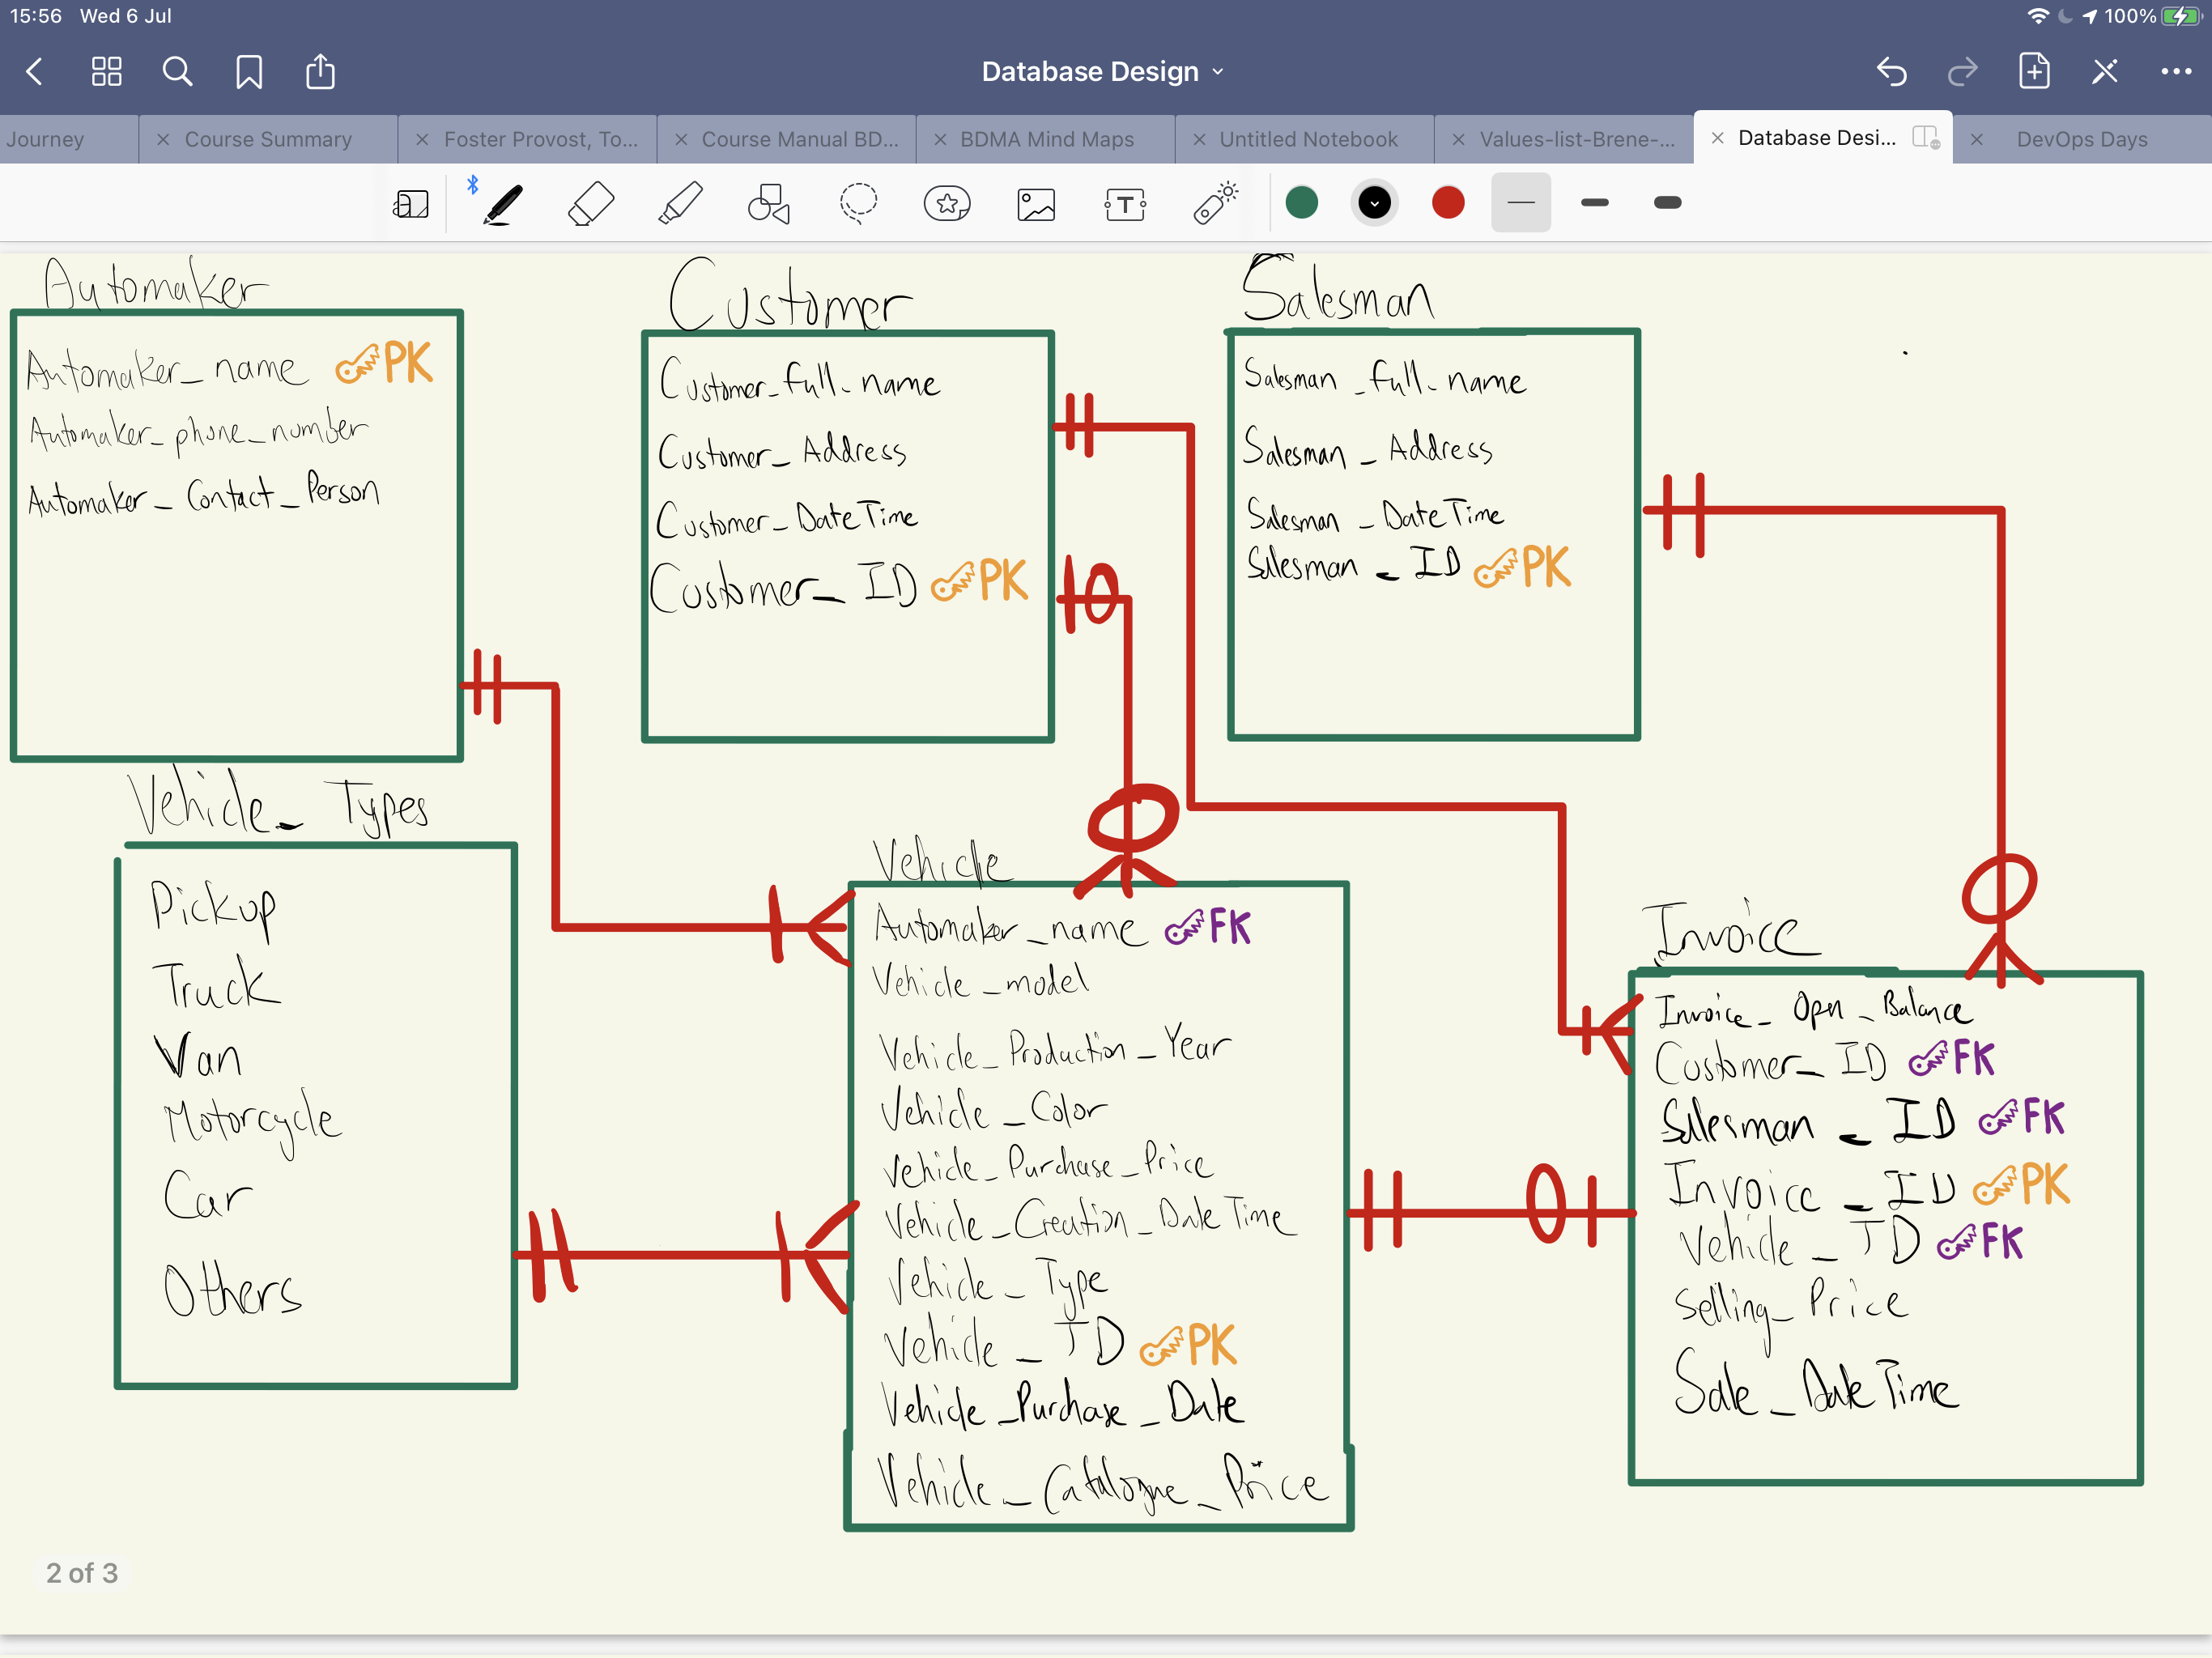 15:56 Wed 6 Jul
100%
Database Design
Journey
Course Summary
Foster Provost, To...
Course Manual BD...
BDMA Mind Maps
Untitled Notebook
Values-list-Brene-...
Database Desi...
DevOps Days
T
Automaker
Automaker_name PK
Automaker_phone_number
Automaker_Contact_Person
Customer
Customer_full_name
Customer_Address
Customer_DateTime
Customer_ID PK
Salesman
Salesman_full_name
Salesman_Address
Salesman_DateTime
Salesman_ID PK
Vehicle_Types
Pickup
Truck
Van
Motorcycle
Car
Others
Vehicle
Automaker_name FK
Vehicle_model
Vehicle_Production_Year
Vehicle_Color
Vehicle_Purchase_Price
Vehicle_Creation_DateTime
Vehicle_Type
Vehicle_ID PK
Vehicle_Purchase_Date
Vehicle_Catalogue_Price
Invoice
Invoice_Open_Balance
Customer_ID FK
Salesman_ID FK
Invoice_ID PK
Vehicle_ID FK
Selling_Price
Sale_DateTime
2 of 3